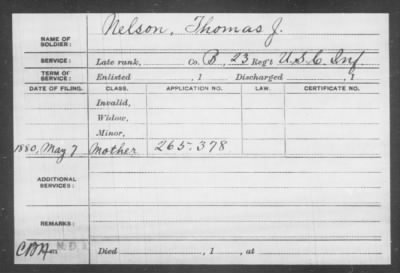 NAME OF SOLDIER: Nelson, Thomas J.
SERVICE: Late rank, Co. B, 23 Reg't U.S.C. Inf
TERM OF SERVICE: Enlisted , 1 Discharged , 1
DATE OF FILING. CLASS. APPLICATION NO. LAW. CERTIFICATE NO.
Invalid,
Widow,
Minor,
1880, May 7 Mother 265.378
ADDITIONAL SERVICES:
REMARKS:
Died , 1 , at